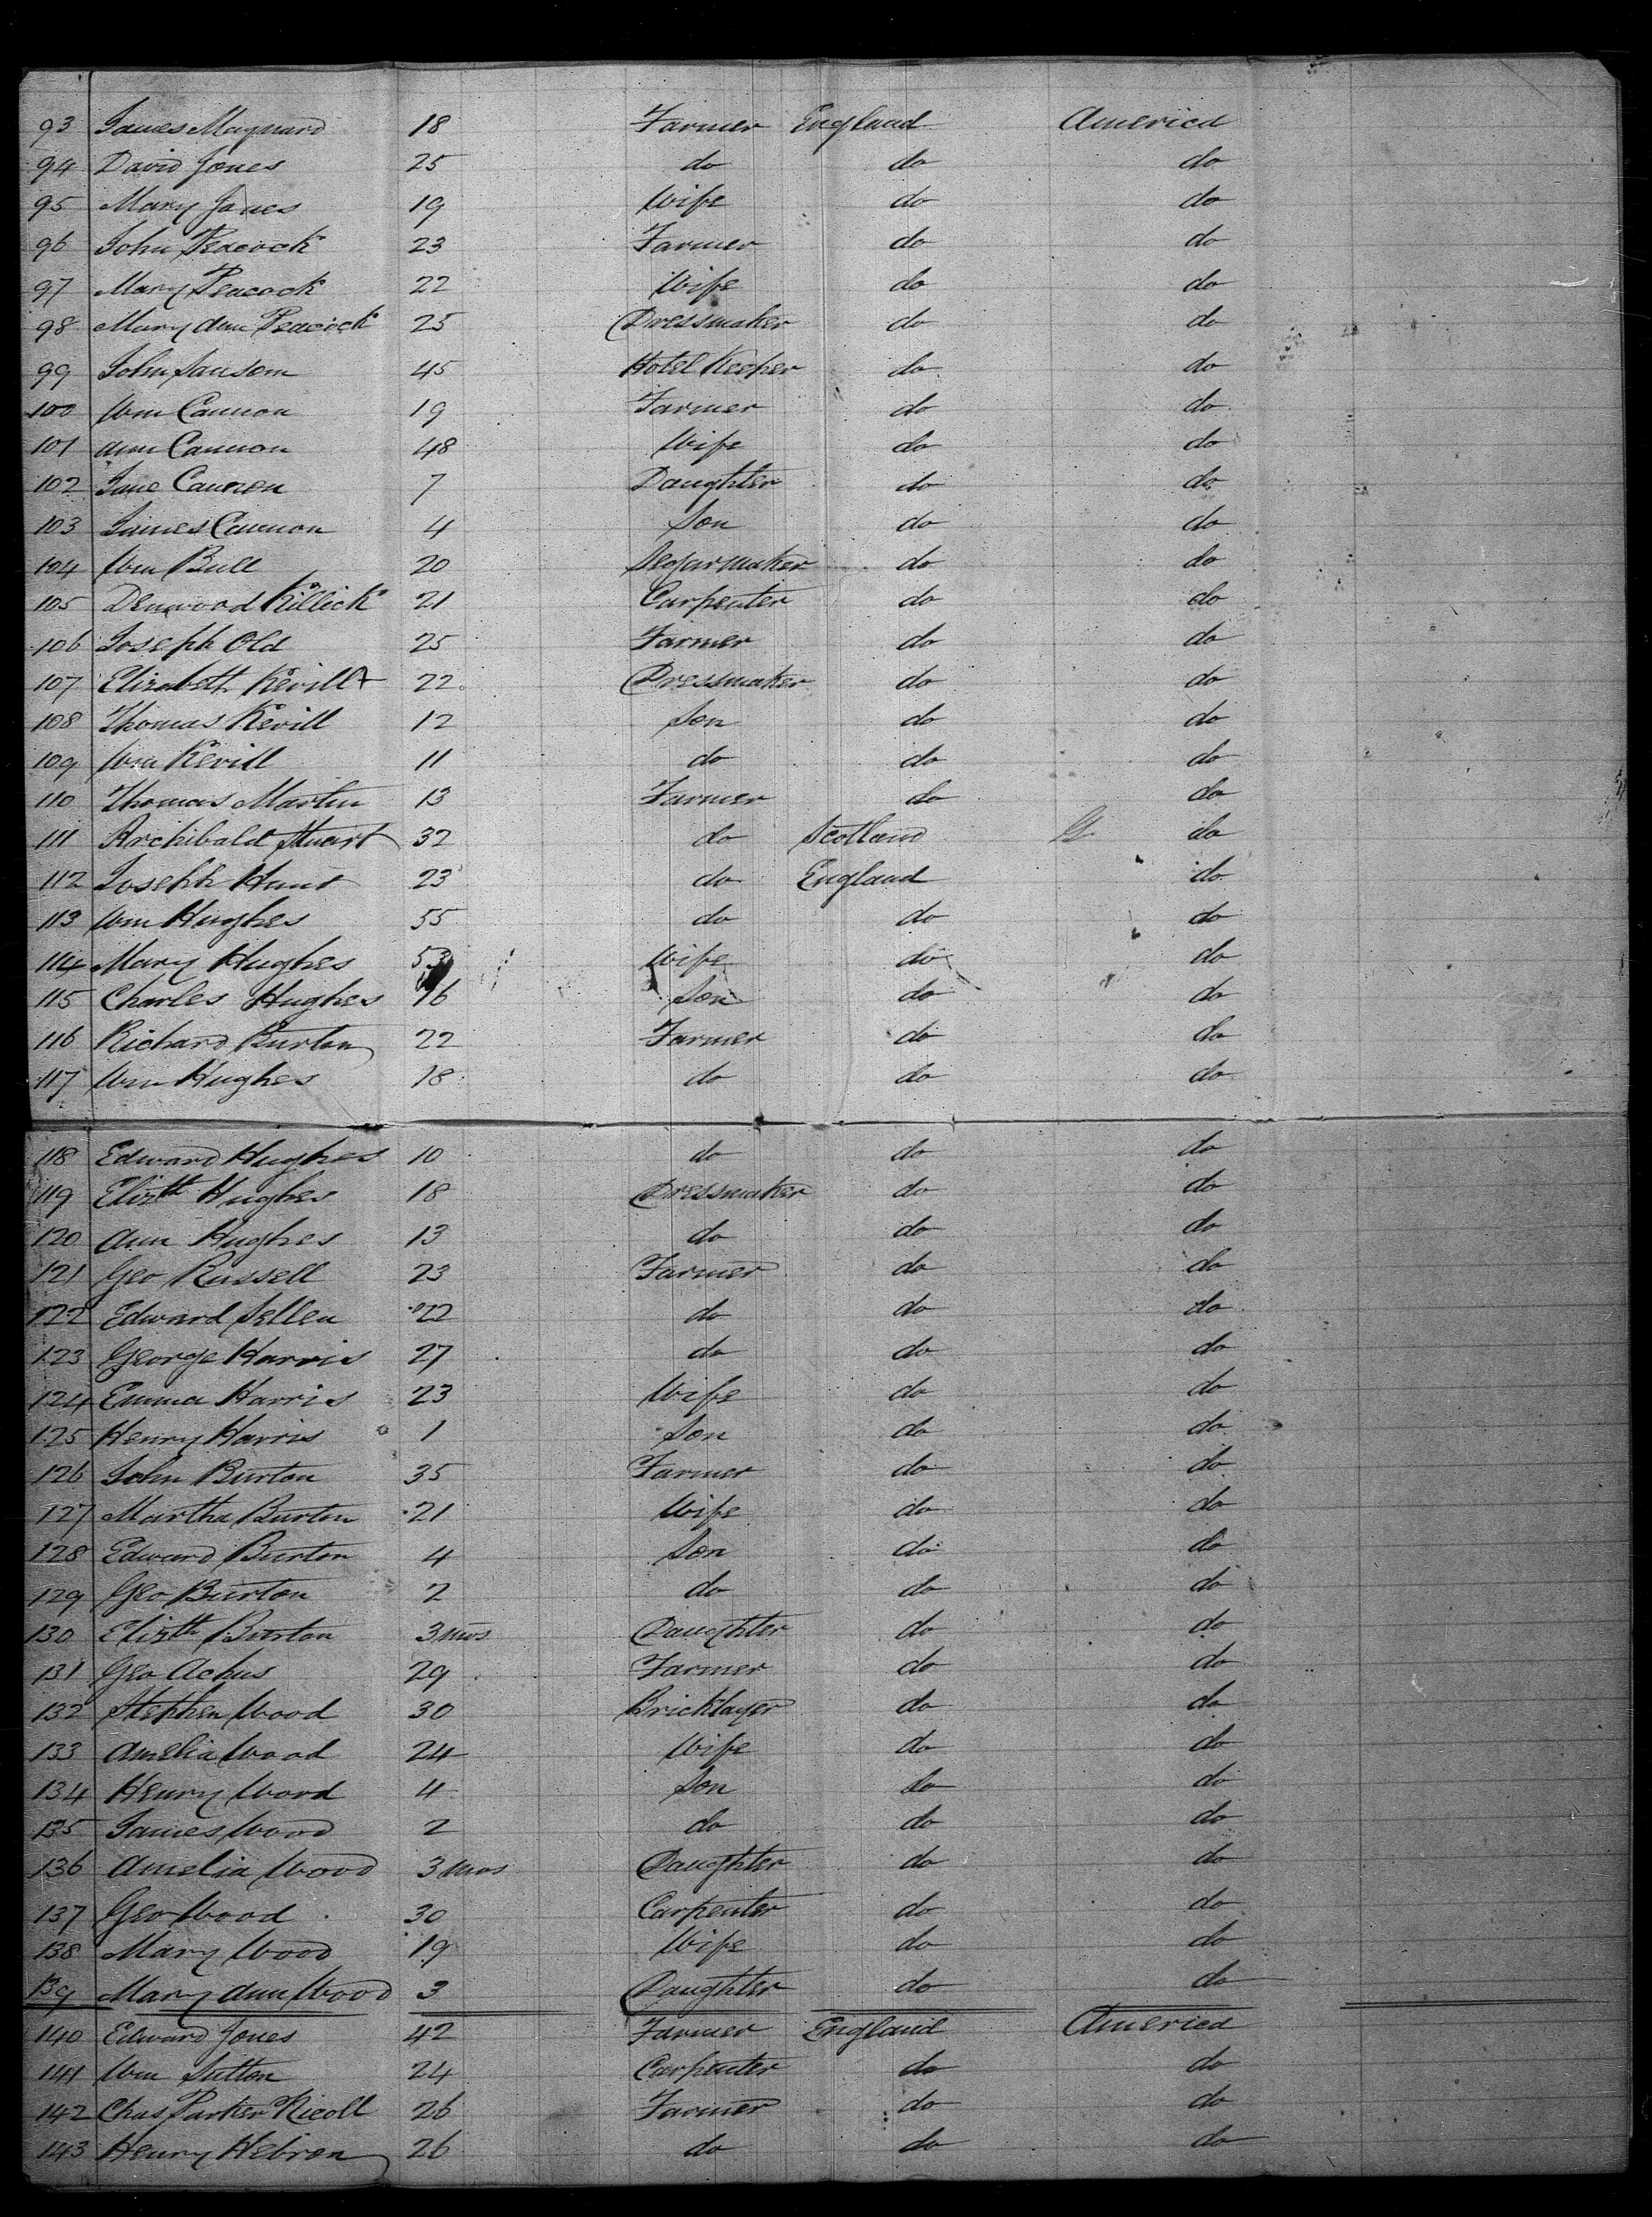 93 James Maynard 18 Farmer England America
94 David Jones 25 do do do
95 Mary Jones 19 Wife do do
96 John Peacock 23 Farmer do do
97 Mary Peacock 22 Wife do do
98 Mary Ann Peacock 25 Dressmaker do do
99 John Sansom 45 Hotel Keeper do do
100 Wm Cannon 19 Farmer do do
101 Ann Cannon 48 Wife do do
102 Jane Cannon 7 Daughter do do
103 James Cannon 4 Son do do
104 Wm Bull 20 Segarmaker do do
105 Denwood Killick 21 Carpenter do do
106 Joseph Old 25 Farmer do do
107 Elizabeth Kevill 22 Dressmaker do do
108 Thomas Kevill 12 Son do do
109 Wm Kevill 11 do do do
110 Thomas Martin 13 Farmer do do
111 Archibald Stuart 32 do Scotland do
112 Joseph Hunt 23 do England do
113 Wm Hughes 55 do do do
114 Mary Hughes 53 Wife do do
115 Charles Hughes 16 Son do do
116 Richard Burton 22 Farmer do do
117 Wm Hughes 18 do do do
118 Edward Hughes 10 do do do
119 Elizth Hughes 18 Dressmaker do do
120 Ann Hughes 13 do do do
121 Geo Russell 23 Farmer do do
122 Edward Sellen 22 do do do
123 George Harris 27 do do do
124 Emma Harris 23 Wife do do
125 Henry Harris 1 Son do do
126 John Burton 35 Farmer do do
127 Martha Burton 21 Wife do do
128 Edward Burton 4 Son do do
129 Geo Burton 2 do do do
130 Elizth Burton 3 mos Daughter do do
131 Geo Achus 29 Farmer do do
132 Stephen Wood 30 Bricklayer do do
133 Amelia Wood 24 Wife do do
134 Henry Wood 4 Son do do
135 James Wood 2 do do do
136 Amelia Wood 3 mos Daughter do do
137 Geo Wood 30 Carpenter do do
138 Mary Wood 19 Wife do do
139 Mary Ann Wood 3 Daughter do do
140 Edward Jones 42 Farmer England America
141 Wm Sutton 24 Carpenter do do
142 Chas Parker Nicoll 26 Farmer do do
143 Henry Hebron 26 do do do